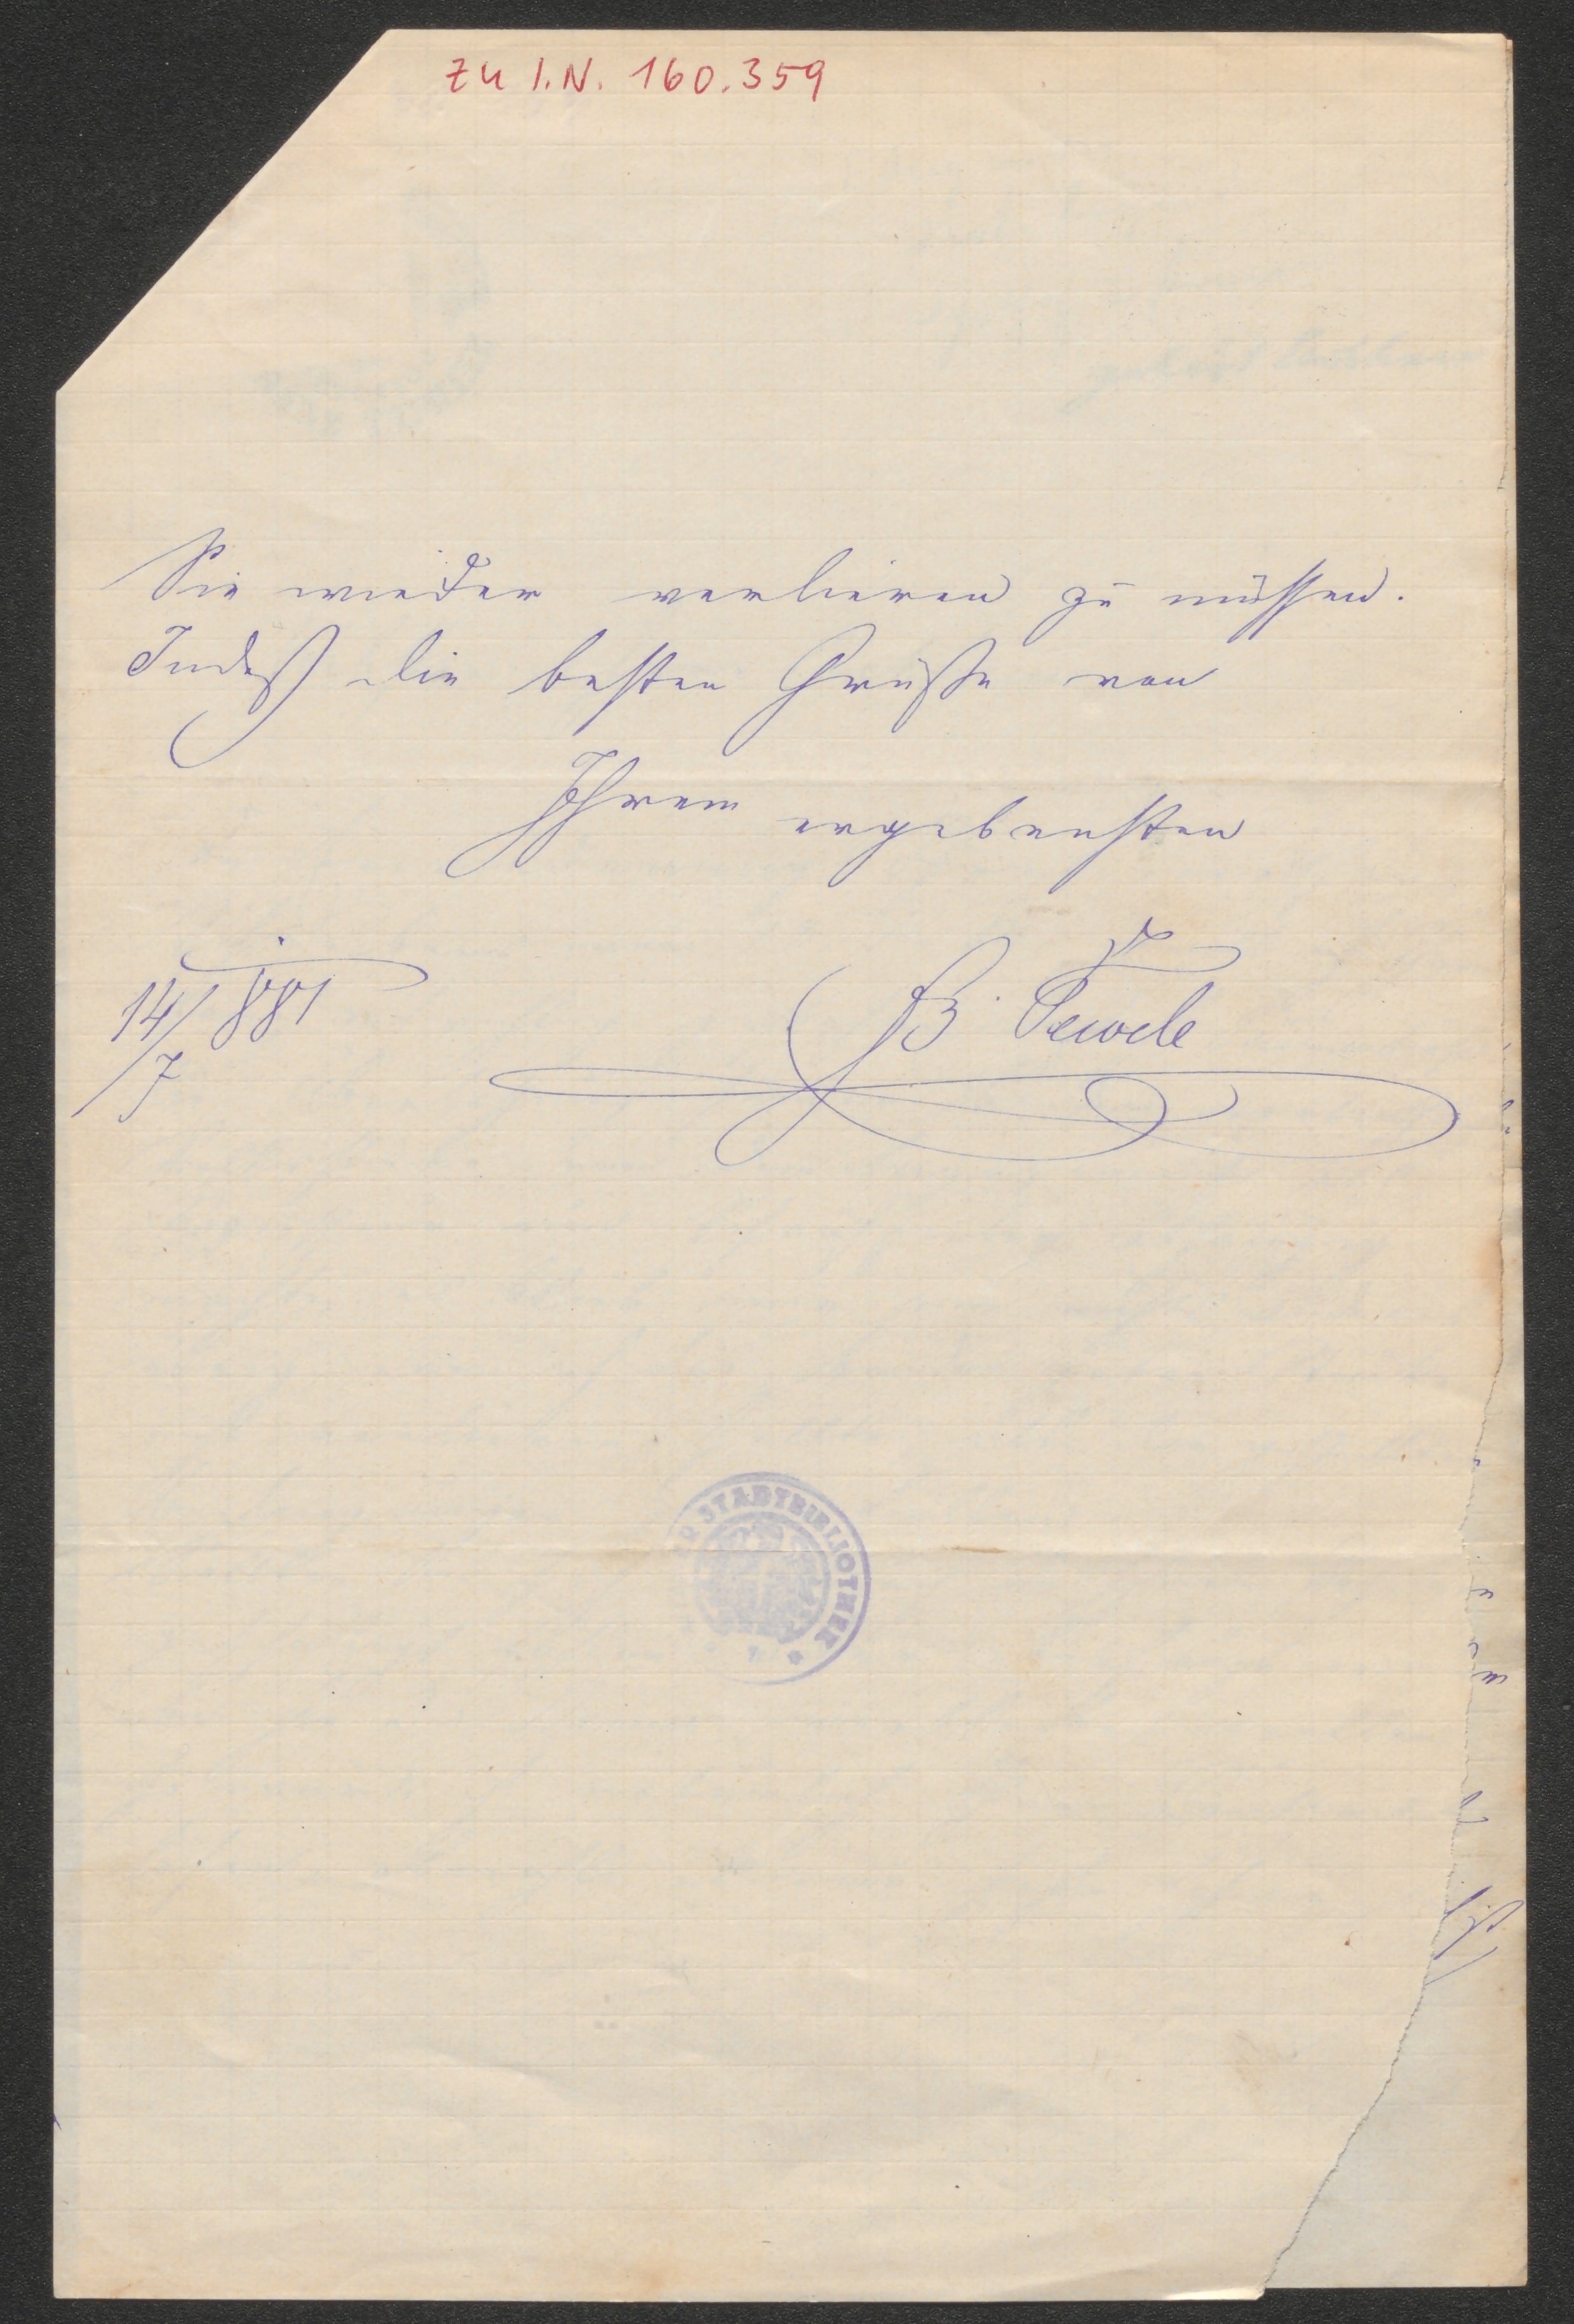 zu I.N. 160.359
Sie wieder verlieren zu müssen.
Indeß die besten Grüße von
Ihrem ergebensten
14/7 881
F. Tewele
STADTBIBLIOTHEK